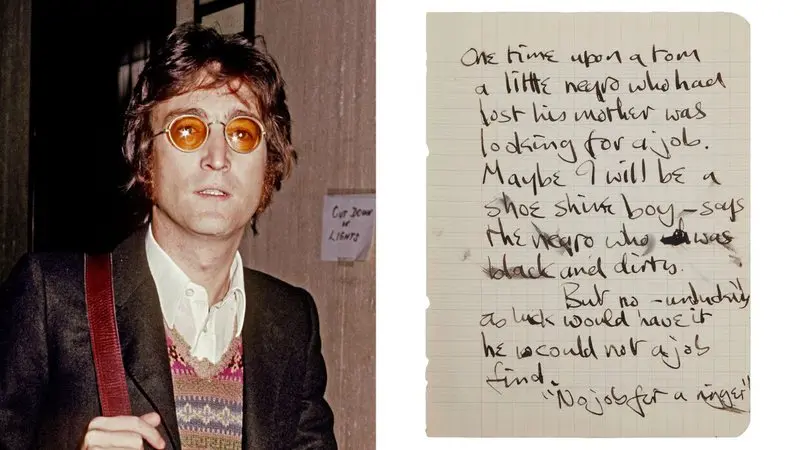 CUT DOWN
ON
LIGHTS
One time upon a tom
a little negro who had
lost his mother was
looking for a job.
Maybe I will be a
shoe shine boy – says
the negro who was
black and dirty.
But no – unluckily
as luck would have it
he could not a job
find.
"No job for a